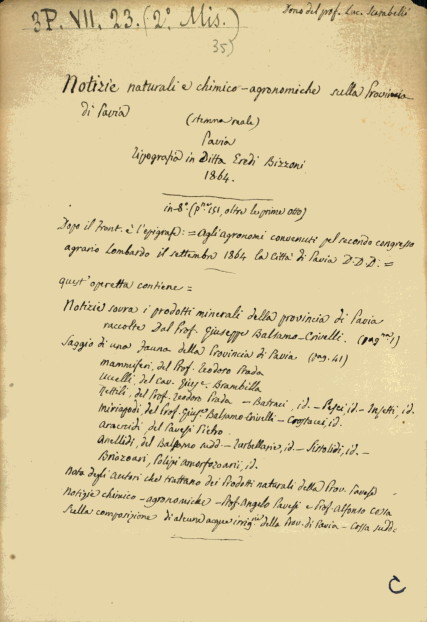 3P. VII. 23. (2º Mis.)
Dono del prof. Luc. Scarabelli
35)
Notizie naturali e chimico-agronomiche sulla Provincia
di Pavia
(stemma reale)
Pavia
Tipografia in Ditta Eredi Bizzoni
1864.
in-8º (pne 151, oltre le prime otto)
Dopo il front. è l'epigrafe: = Agli agronomi convenuti pel secondo congresso
agrario Lombardo il settembre 1864 la Città di Pavia D.D.D: =
quest'operetta contiene =
Notizie sovra i prodotti minerali della provincia di Pavia
raccolte dal Prof. Giuseppe Balsamo-Crivelli. (pagna 1)
Saggio di una fauna della Provincia di Pavia (pag. 41)
mammiferi, del Prof. Teodoro Prada
Uccelli, del Cav. Giuse. Brambilla
Rettili, del Prof. Teodoro Prada - Batraci, id. - Pesci, id - Insetti, id.
miriapodi, del Prof. Giuse Balsamo Crivelli - Crostacei, id.
Aracnidi, del Pavesi Pietro.
Anellidi, del Balsamo sudd: - Turbellarie, id. - Sistolidi, id. -
Briozoari, Polipi amorfozoarii, id.
Nota degli Autori che trattano dei Prodotti naturali della Prov. Pavese
Notizie chimico-agronomiche - Prof. Angelo Pavesi e Prof. Alfonso Cossa
Sulla composizione di alcune acque irrigue della Prov. di Pavia - Cossa sudd:
C